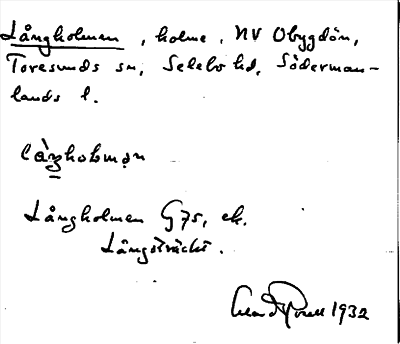 Långholmen, holme, NV Obygdön,
Toresunds sn, Selebo hd, Söderman-
lands l.
Långholmen G75, ek.
Långsträckt.
1932